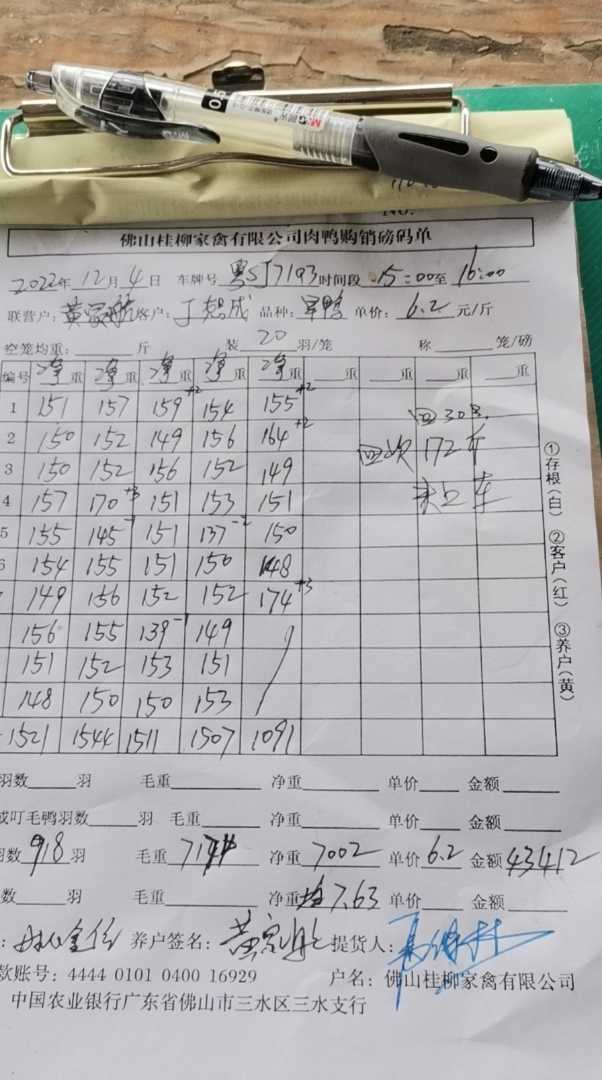 M&G
NO.
佛山桂柳家禽有限公司肉鸭购销磅码单
2022年 12月 4日 车牌号 粤SJ7193 时间段 15:00至 16:00
联营户: 黄家航 客户: 丁 成 品种: 鸭 单价: 6.2 元/斤
空笼均重: 斤 装 20 羽/笼 称 笼/磅
编号 净重 净重 净重 净重 净重 重 重 重
1 151 157 159+2 154 155+2 回30只
2 150 152 149 156 164+2 四次 172斤
3 150 152 156 152 149
4 157 170+3 151 153 151 车
5 155 145-1 151 137-2 150
6 154 155 151 150 148
149 156 152 152 174+3
156 155 139-1 149
151 152 153 151
148 150 150 153
1521 1544 1511 1507 1091
①存根(白) ②客户(红) ③养户(黄)
羽数 羽 毛重 净重 单价 金额
或叮毛鸭羽数 羽 毛重 净重 单价 金额
羽数 918 羽 毛重 7174 净重 7002 单价 6.2 金额 43412
数 羽 毛重 净重 均7.63 单价 金额
: 养户签名: 黄家航 提货人:
款账号: 4444 0101 0400 16929 户名: 佛山桂柳家禽有限公司
中国农业银行广东省佛山市三水区三水支行